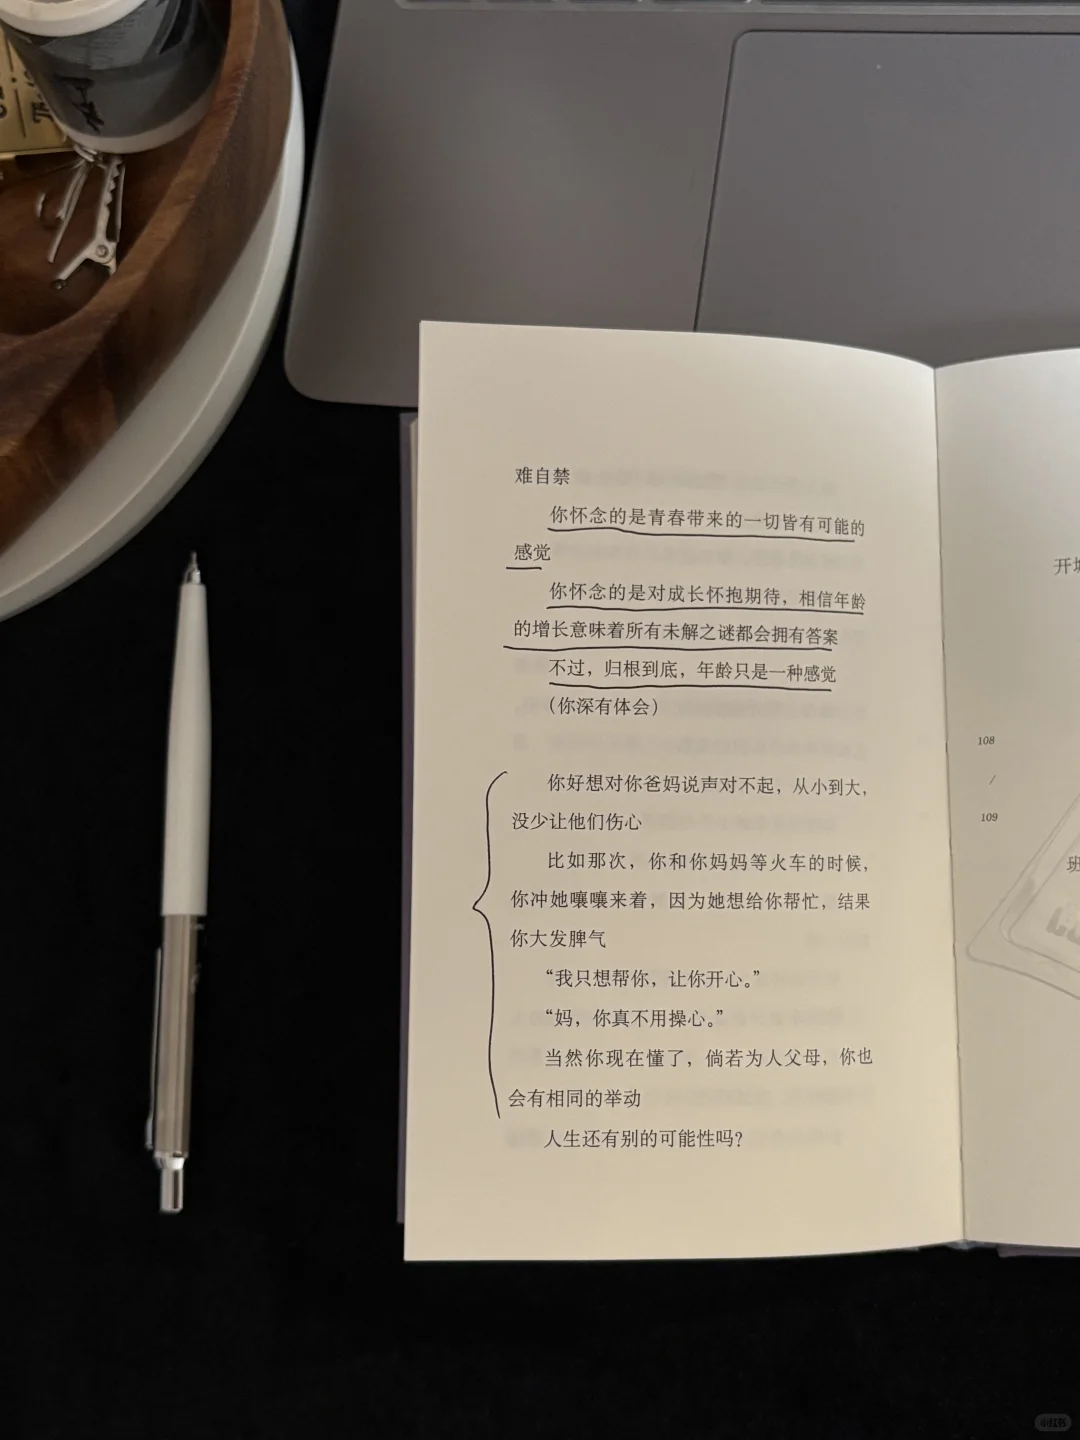 难自禁
你怀念的是青春带来的一切皆有可能的
感觉
你怀念的是对成长怀抱期待，相信年龄
的增长意味着所有未解之谜都会拥有答案
不过，归根到底，年龄只是一种感觉
（你深有体会）
你好想对你爸妈说声对不起，从小到大，
没少让他们伤心
比如那次，你和你妈妈等火车的时候，
你冲她嚷嚷来着，因为她想给你帮忙，结果
你大发脾气
“我只想帮你，让你开心。”
“妈，你真不用操心。”
当然你现在懂了，倘若为人父母，你也
会有相同的举动
人生还有别的可能性吗？
开
108
/
109
班
小红书